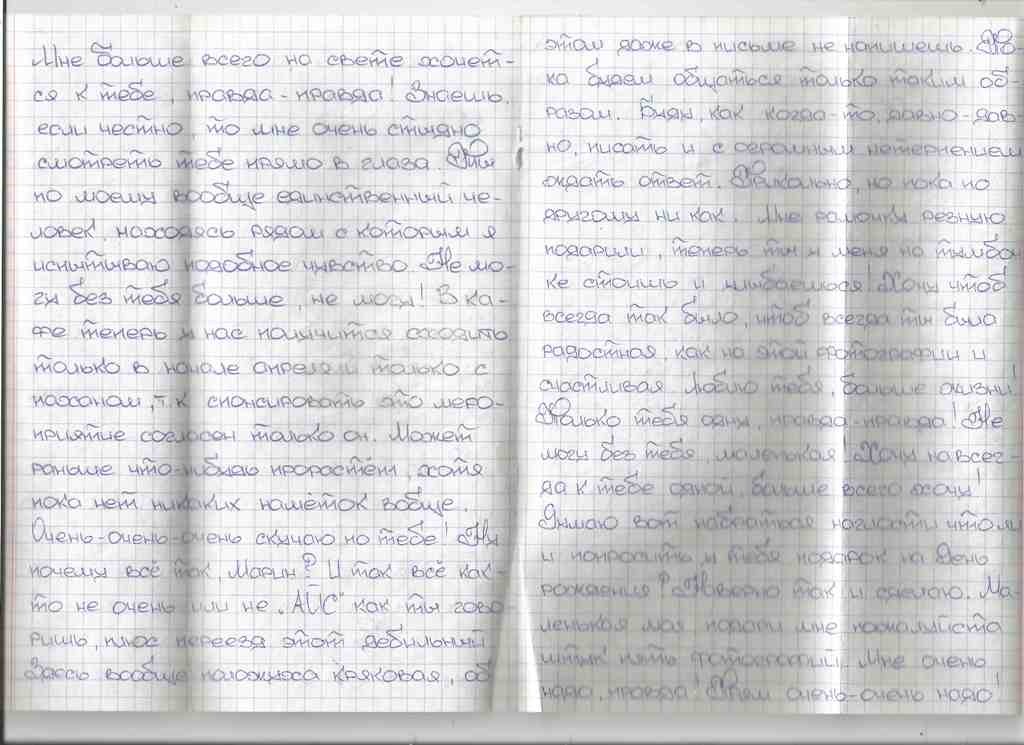 Мне больше всего на свете хочет-
ся к тебе, правда-правда! Знаешь,
если честно, то мне очень стыдно
смотреть тебе прямо в глаза. Ты
по моему вообще единственный че-
ловек, находясь рядом с которым я
испытываю подобное чувство. Не мо-
гу без тебя больше, не могу! В ка-
фе теперь у нас получится сходить
только в начале апреля и только с
пасаном, т.к спонсировать это меро-
приятие согласен только он. Может
раньше что-нибудь прорастём, хотя
пока нет никаких намёток вобще.
Очень-очень-очень скучаю по тебе! Ну
почему всё так, Марин? И так всё как-
то не очень или не "АЙС" как ты гово-
ришь, плюс переезд этот дебильный.
Здесь вообще положуха кряковая, об
этом даже в письме не напишешь. По-
ка будем общаться только таким об-
разом. Буду, как когда-то, давно-дав-
но, писать и с огромным нетерпением
ждать ответ. Прикольно, но пока по
другому ни как. Мне рамочку резную
подарили, теперь ты у меня на тумбоч-
ке стоишь и улыбаешься! Хочу чтоб
всегда так было, чтоб всегда ты была
радостная, как на этой фотографии и
счастливая. Люблю тебя, больше жизни!
Только тебя одну, правда-правда! Не
могу без тебя, маленькая! Хочу навсег-
да к тебе одной, больше всего хочу!
Думаю вот набраться наглости чтоли
и попросить у тебя подарок на День
рождения? Наверно так и сделаю. Ма-
ленькая моя подари мне пожалуйста
штук пять фотографий. Мне очень
надо, правда! Прям очень-очень надо!